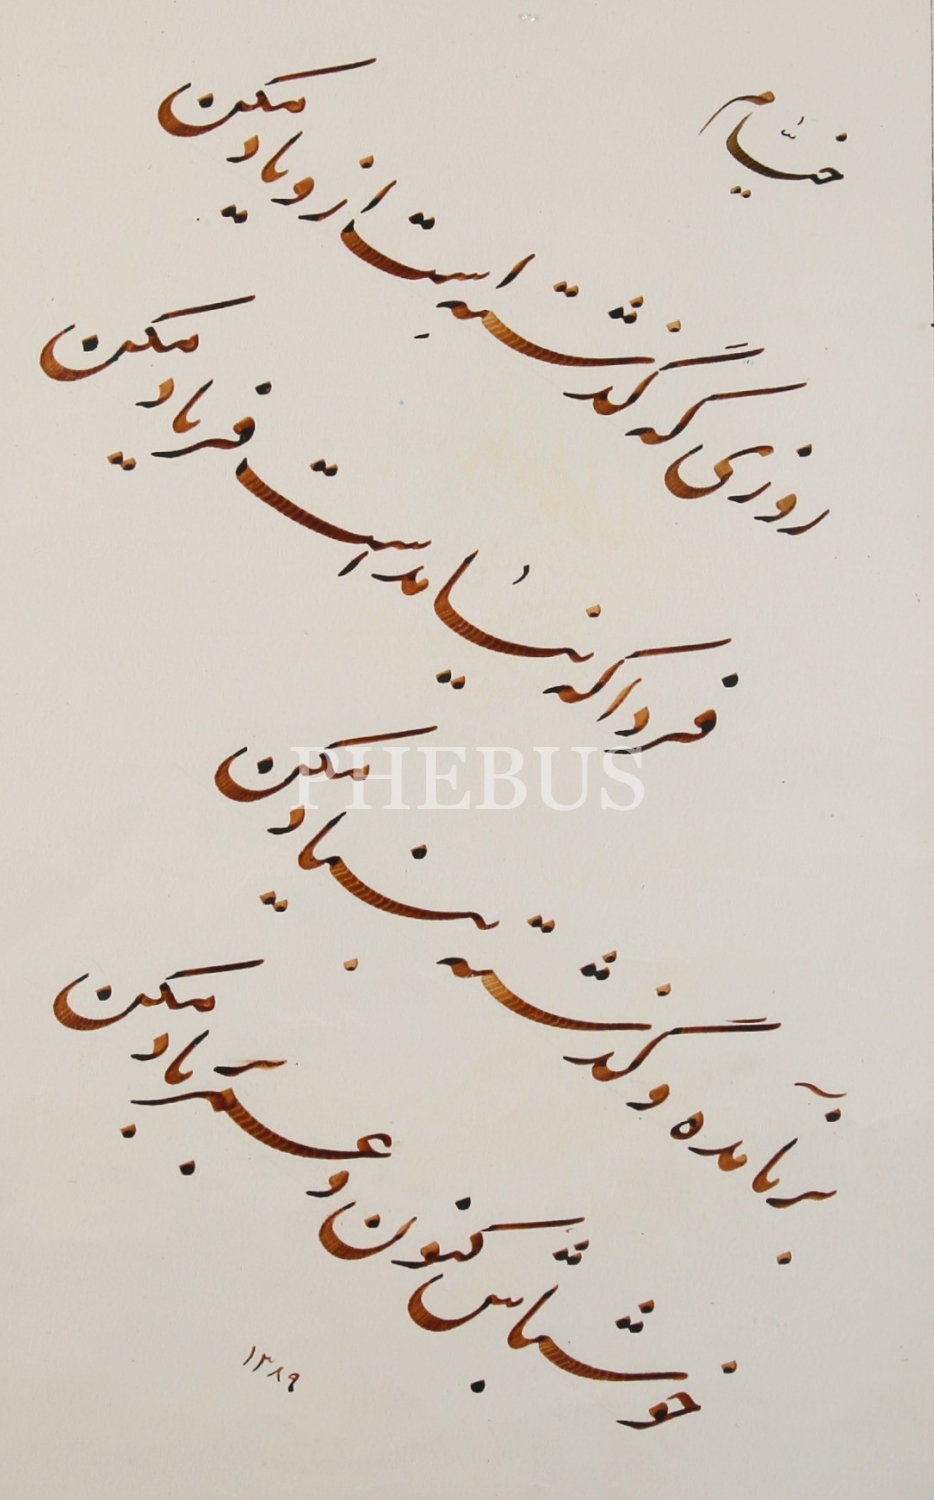 خیّام
روزی که گذشته است ازو یاد مکن
فردا که نیامدست فریاد مکن
PHEBUS
برنامده و گذشته بنیاد مکن
خوش باش کنون و عمر بر باد مکن
۱۳۸۹